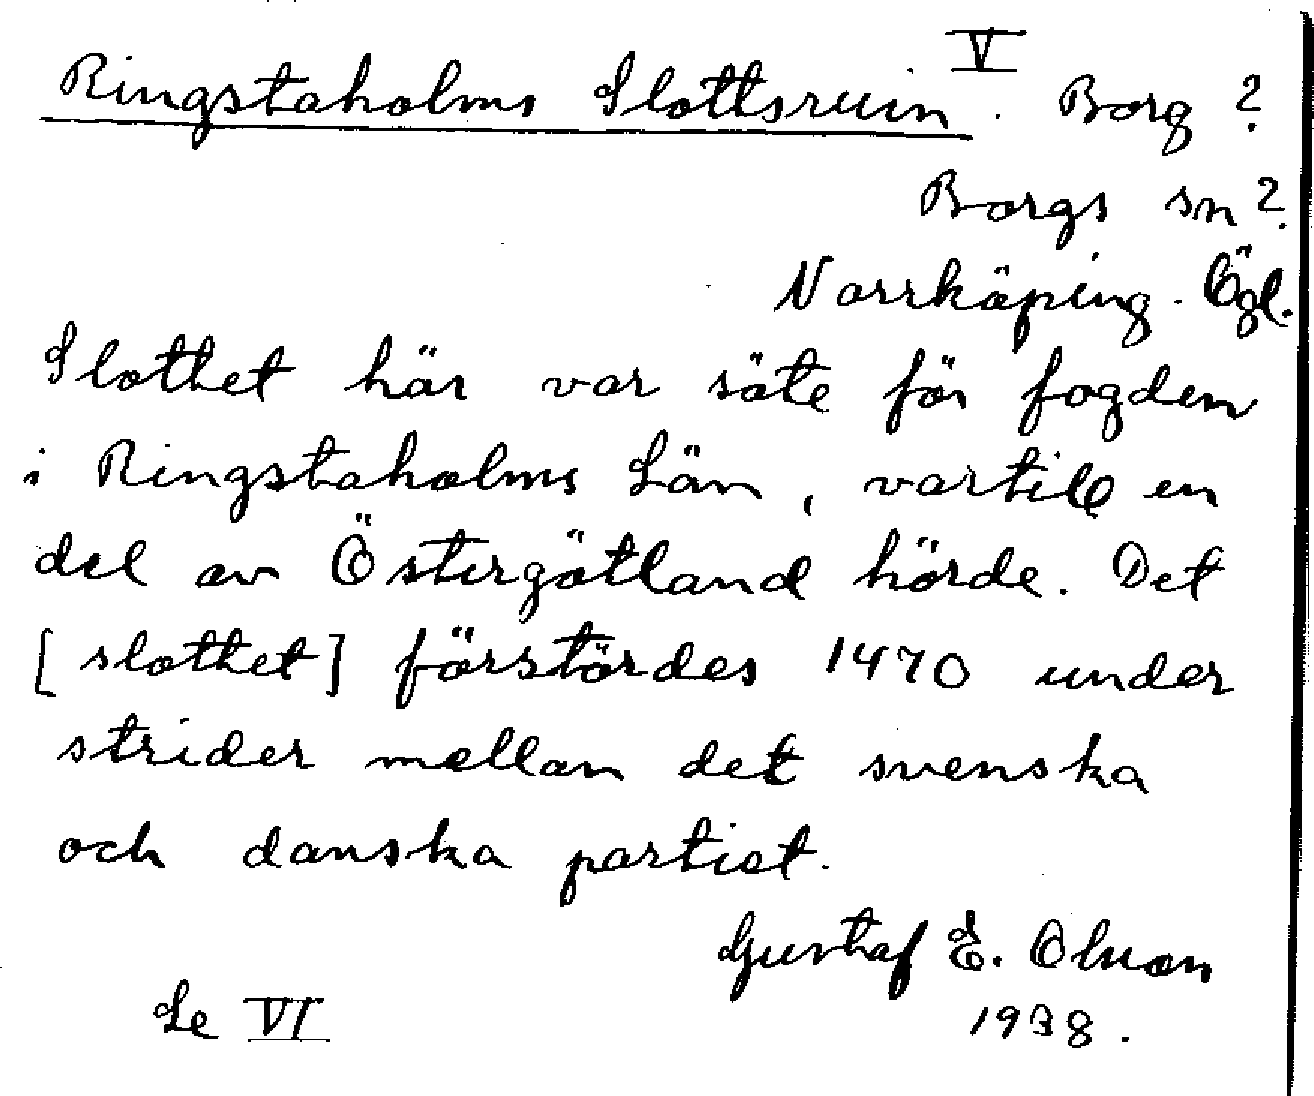 Ringstaholms Slottsruin V. Borg ?
Borgs sn ?
Norrköping. Ögl.
Slottet här var säte för fogden
i Ringstaholms Län, vartill en
del av Östergötland hörde. Det
[slottet] förstördes 1470 under
strider mellan det svenska
och danska partiet.
Gustaf E. Olson
1938.
Se VI